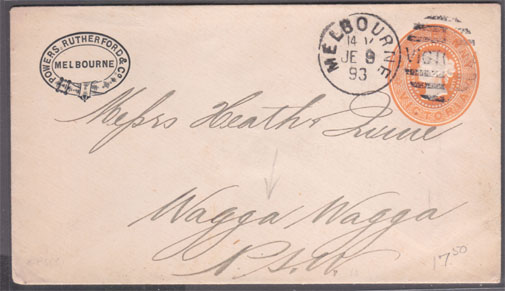 POWERS, RUTHERFORD & Co
MELBOURNE
MELBOURNE
14 V
JE 9
93
VICTORIA
Messrs Heath &
Wagga Wagga
N.S.W.
17.50